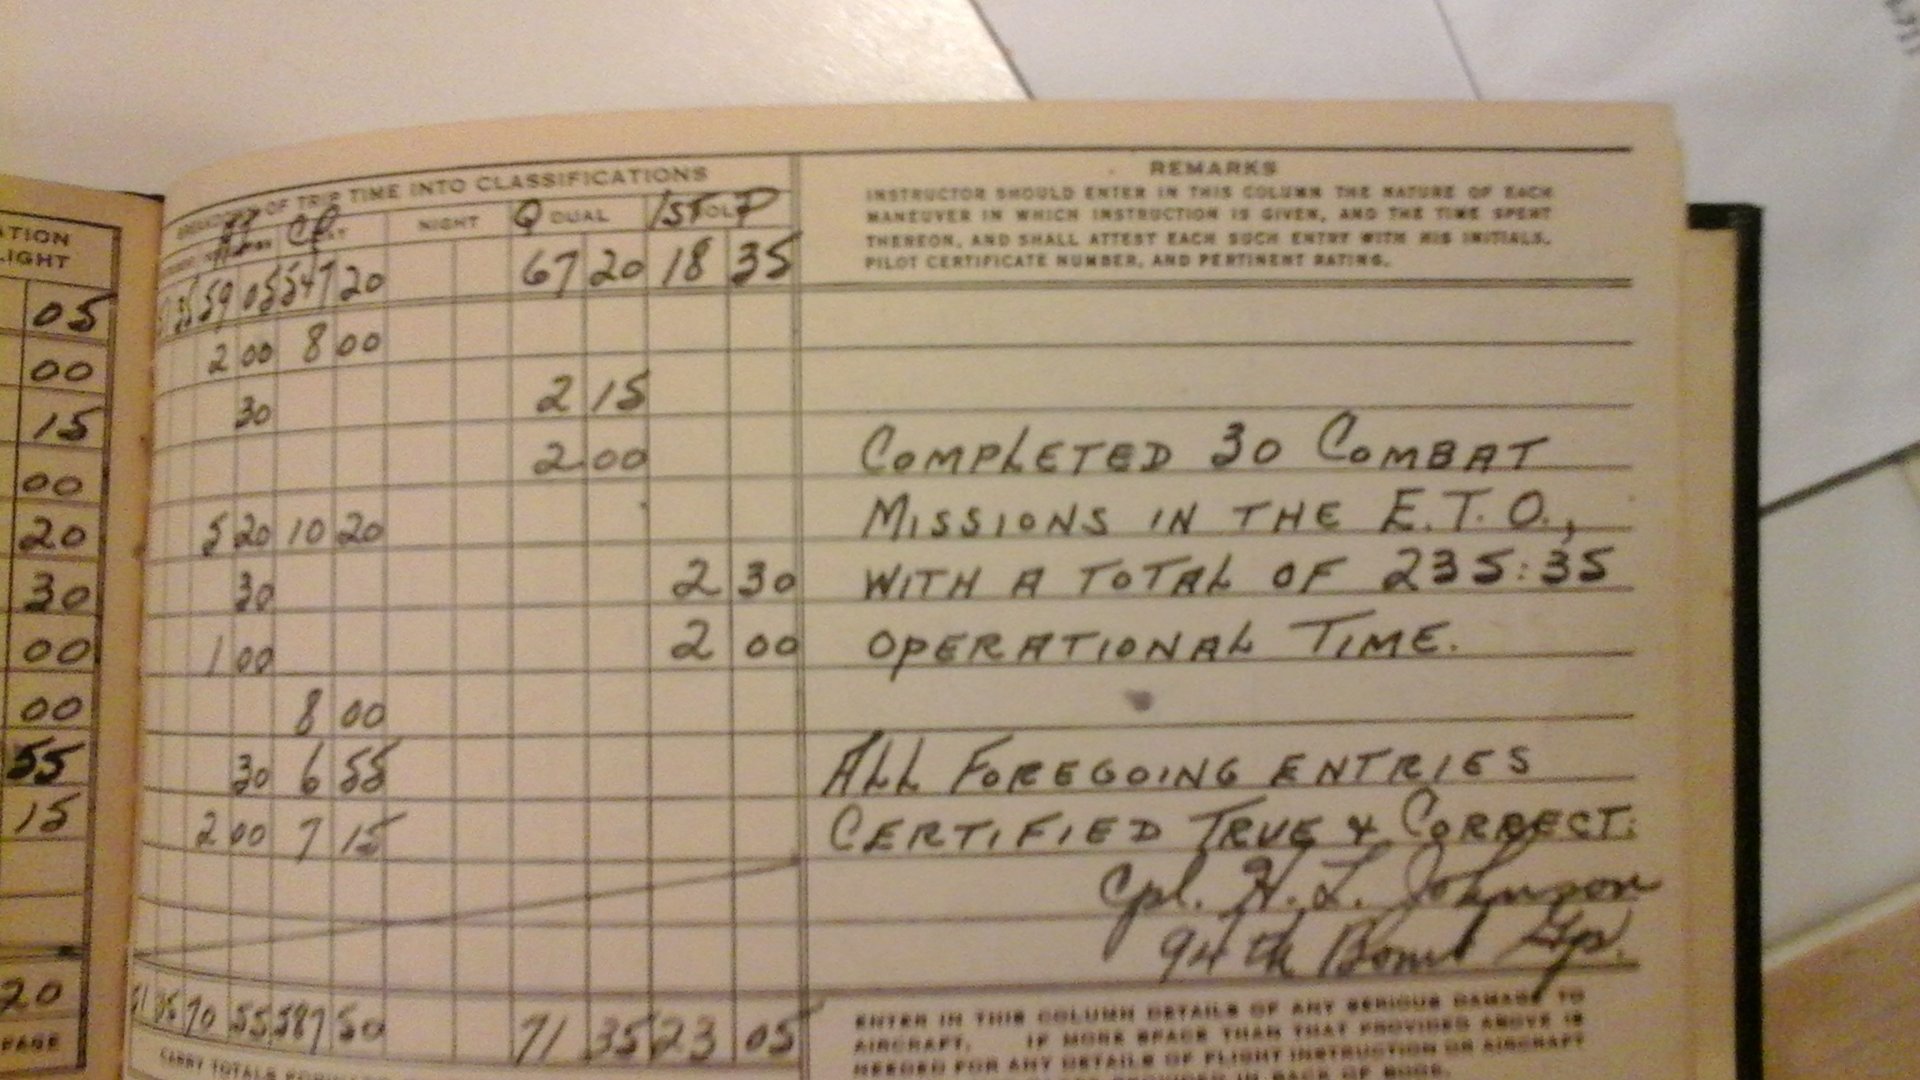 ATION
LIGHT
05
00
15
00
20
30
00
00
55
15
20
PAGE
BREAKDOWN OF TRIP TIME INTO CLASSIFICATIONS
CP NIGHT Q DUAL 1ST P
59 05 547 20 67 20 18 35
2 00 8 00
30 2 15
2 00
5 20 10 20
30 2 30
1 00 2 00
8 00
30 6 55
2 00 7 15
70 55 587 50 71 35 23 05
CARRY TOTALS
REMARKS
INSTRUCTOR SHOULD ENTER IN THIS COLUMN THE NATURE OF EACH
MANEUVER IN WHICH INSTRUCTION IS GIVEN, AND THE TIME SPENT
THEREON, AND SHALL ATTEST EACH SUCH ENTRY WITH HIS INITIALS,
PILOT CERTIFICATE NUMBER, AND PERTINENT RATING.
COMPLETED 30 COMBAT
MISSIONS IN THE E.T.O.,
WITH A TOTAL OF 235:35
OPERATIONAL TIME.
ALL FOREGOING ENTRIES
CERTIFIED TRUE & CORRECT:
Cpl. H. L. Johnson
94th Bomb Gp.
ENTER IN THIS COLUMN DETAILS OF ANY SERIOUS DAMAGE TO
AIRCRAFT. IF MORE SPACE THAN THAT PROVIDED ABOVE IS
NEEDED FOR ANY DETAILS OF FLIGHT INSTRUCTION OR AIRCRAFT